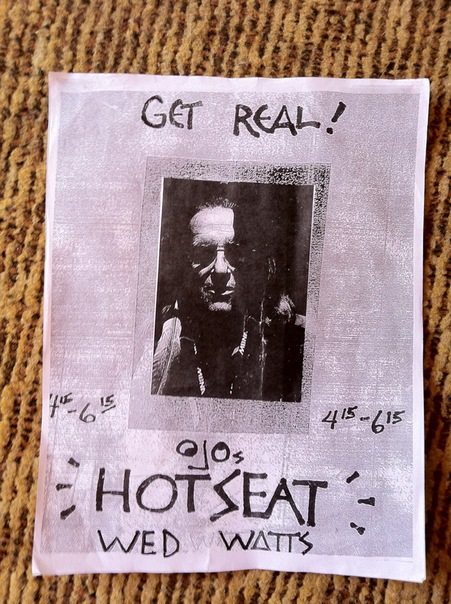 GET REAL!
4 15 - 6 15
4 15 - 6 15
OJOs
HOT SEAT
WED WATTS